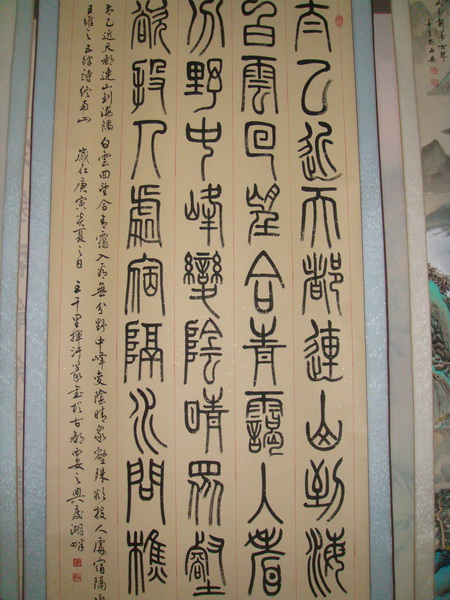 太乙近天都連山到海
白雲回望合青靄入看
分野中峰變陰晴眾壑
欲投人處宿隔水問樵
太乙近天都連山到海隅白雲回望合青靄入看無分野中峰變陰晴眾壑殊欲投人處宿隔水
王維之五律詩終南山 歲在庚寅炎夏之日 王千里揮汗篆書於古都西安之興慶湖畔